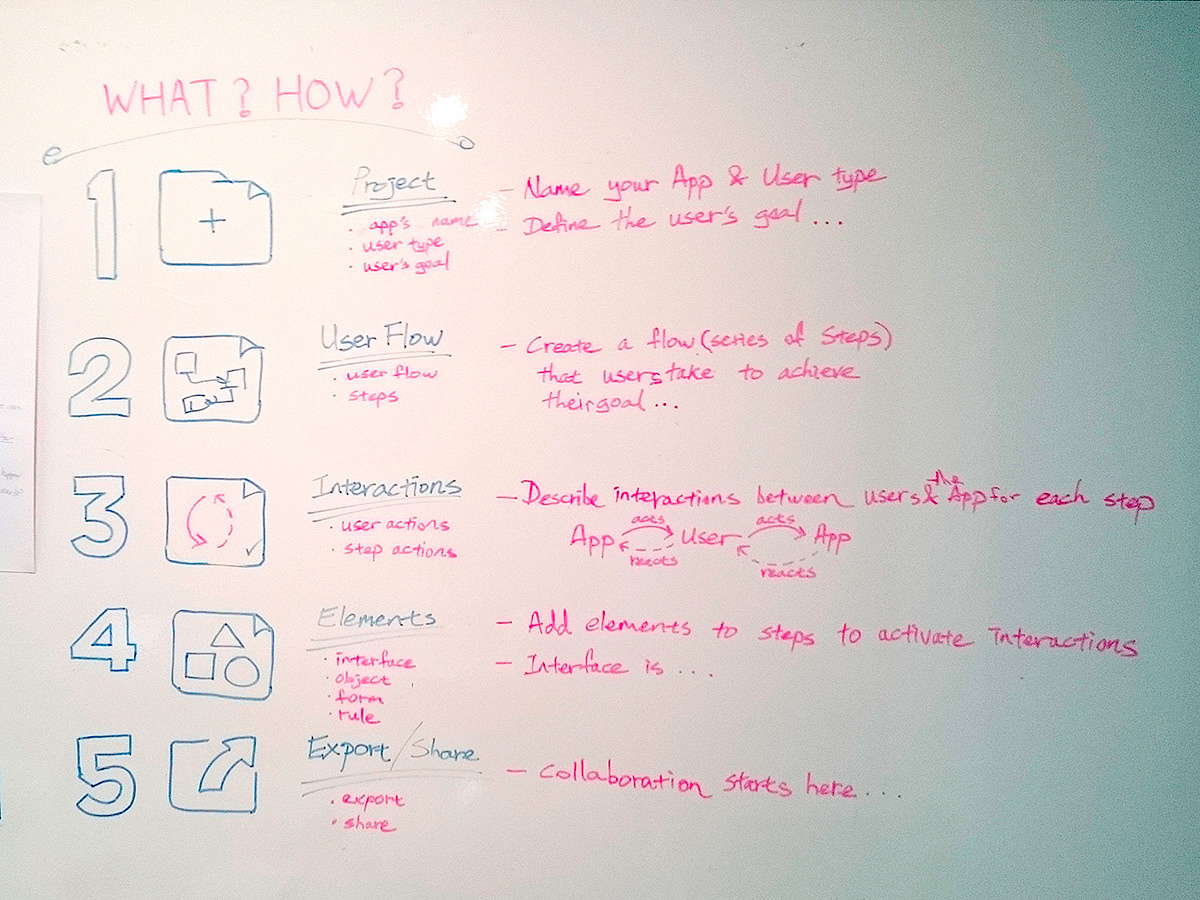 WHAT? HOW?
1
Project
· app's name
· user type
· user's goal
- Name your App & User type
- Define the user's goal...
2
User Flow
· user flow
· steps
- Create a flow (series of Steps)
that users take to achieve
their goal...
3
Interactions
· user actions
· step actions
- Describe interactions between users & the App for each step
App acts User acts App
reacts reacts
4
Elements
· interface
· object
· form
· rule
- Add elements to steps to activate interactions
- Interface is ...
5
Export/Share
· export
· share
- Collaboration starts here...